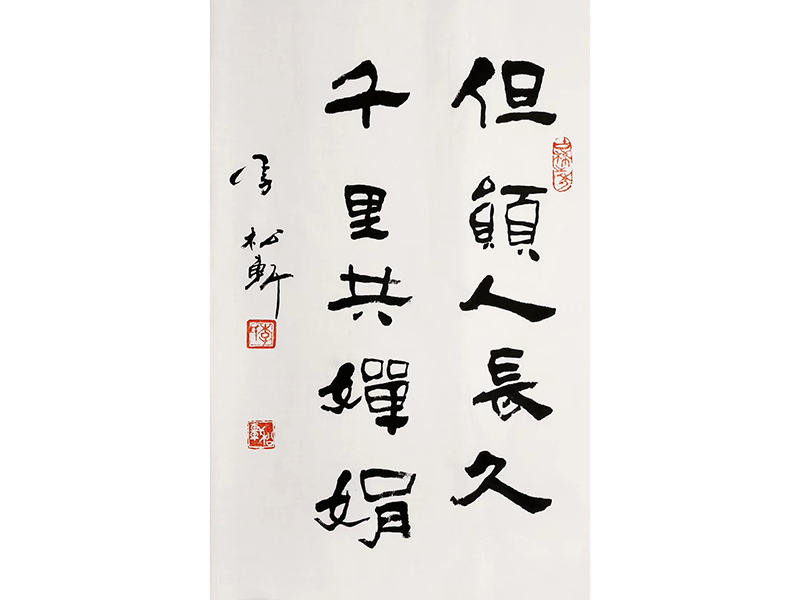 但願人長久
千里共嬋娟
松軒